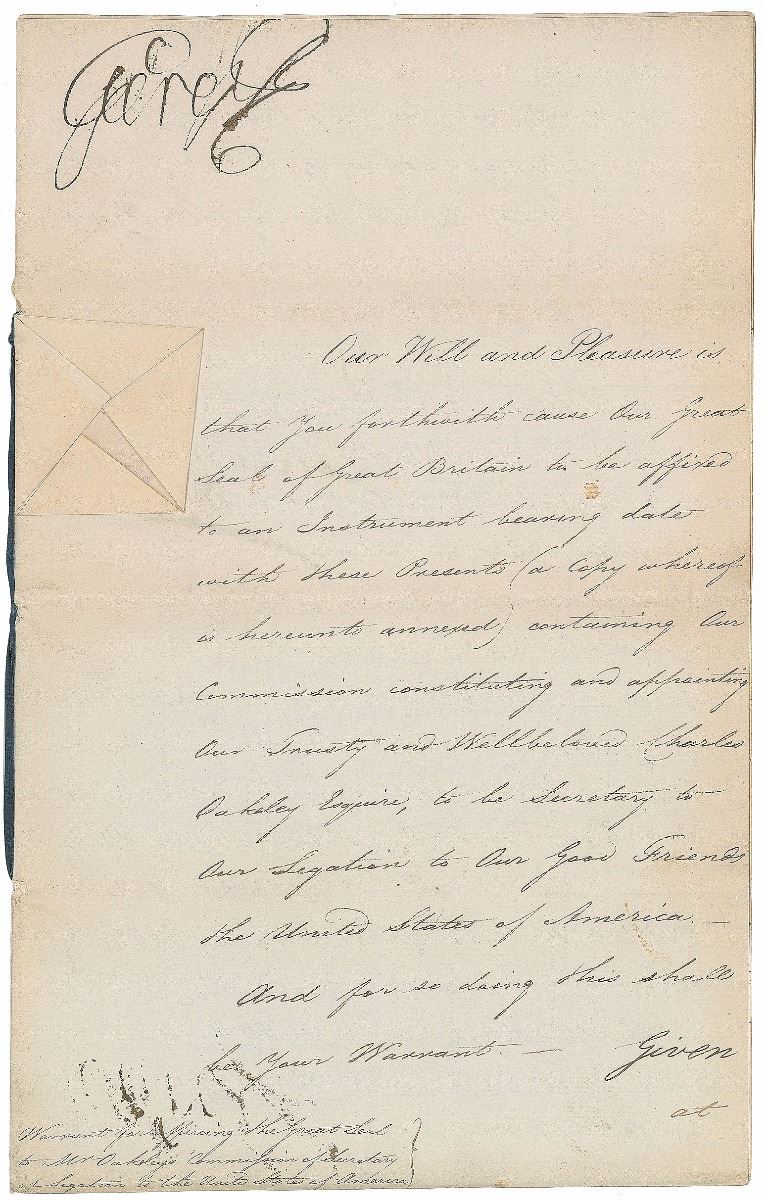 George R
Our Will and Pleasure is
that You forthwith cause Our Great
Seal of Great Britain to be affixed
to an Instrument bearing date
with these Presents (a Copy whereof
is hereunto annexed) containing Our
Commission constituting and appointing
Our Trusty and Wellbeloved Charles
Oakeley Esquire, to be Secretary to
Our Legation to Our Good Friends
the United States of America. —
And for so doing this shall
be Your Warrant. — Given
at
Warrant for Affixing the Great Seal
to Mr Oakeley's Commission of Secretary
of Legation to the United States of America